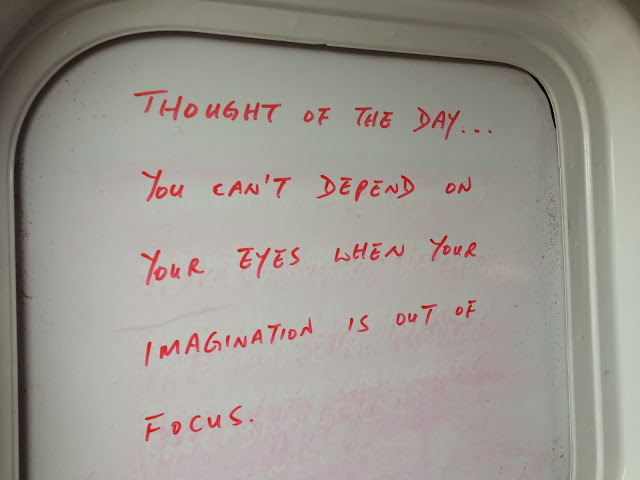 THOUGHT OF THE DAY...
YOU CAN'T DEPEND ON
YOUR EYES WHEN YOUR
IMAGINATION IS OUT OF
FOCUS.